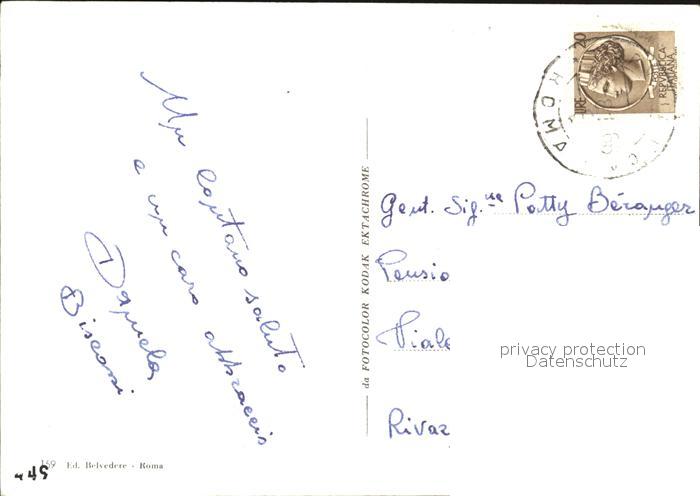 Un lontano saluto
e un caro abbraccio
Daniela
LIRE 20
POSTE
REPVBBLICA
ITALIANA
ROMA
da FOTOCOLOR KODAK EKTACHROME
Gent. Sig.na Patty Béranger
Pensio
Viale
Rivaz
privacy protection
Datenschutz
169 Ed. Belvedere - Roma